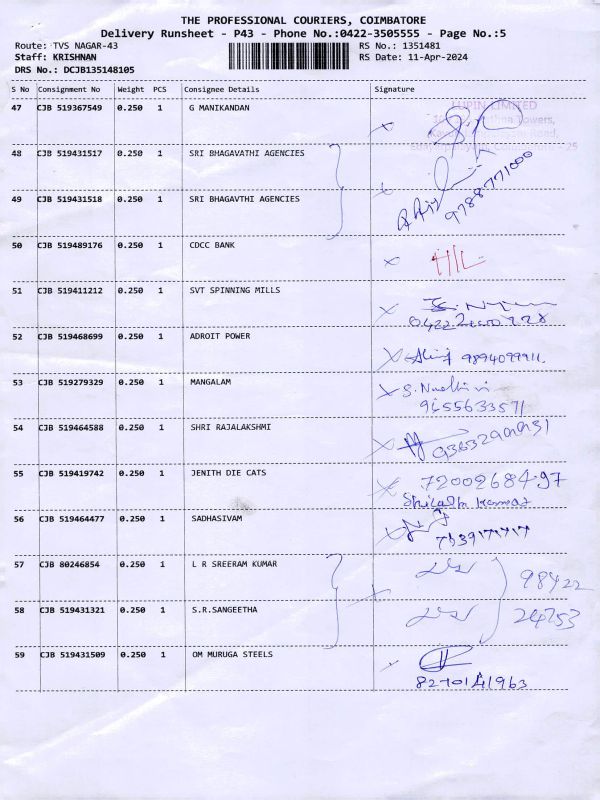 THE PROFESSIONAL COURIERS, COIMBATORE
Delivery Runsheet - P43 - Phone No.:0422-3505555 - Page No.:5
Route: TVS NAGAR-43 RS No.: 1351481
Staff: KRISHNAN RS Date: 11-Apr-2024
DRS No.: DCJB135148105
S No Consignment No Weight PCS Consignee Details Signature
47 CJB 519367549 0.250 1 G MANIKANDAN
LUPIN LIMITED
Towers,
Road,
48 CJB 519431517 0.250 1 SRI BHAGAVATHI AGENCIES
49 CJB 519431518 0.250 1 SRI BHAGAVTHI AGENCIES
9788771000
50 CJB 519489176 0.250 1 CDCC BANK
51 CJB 519411212 0.250 1 SVT SPINNING MILLS
52 CJB 519468699 0.250 1 ADROIT POWER
9894099911
53 CJB 519279329 0.250 1 MANGALAM
9655633571
54 CJB 519464588 0.250 1 SHRI RAJALAKSHMI
55 CJB 519419742 0.250 1 JENITH DIE CATS
7200268497
56 CJB 519464477 0.250 1 SADHASIVAM
57 CJB 80246854 0.250 1 L R SREERAM KUMAR
98422
58 CJB 519431321 0.250 1 S.R.SANGEETHA
24753
59 CJB 519431509 0.250 1 OM MURUGA STEELS